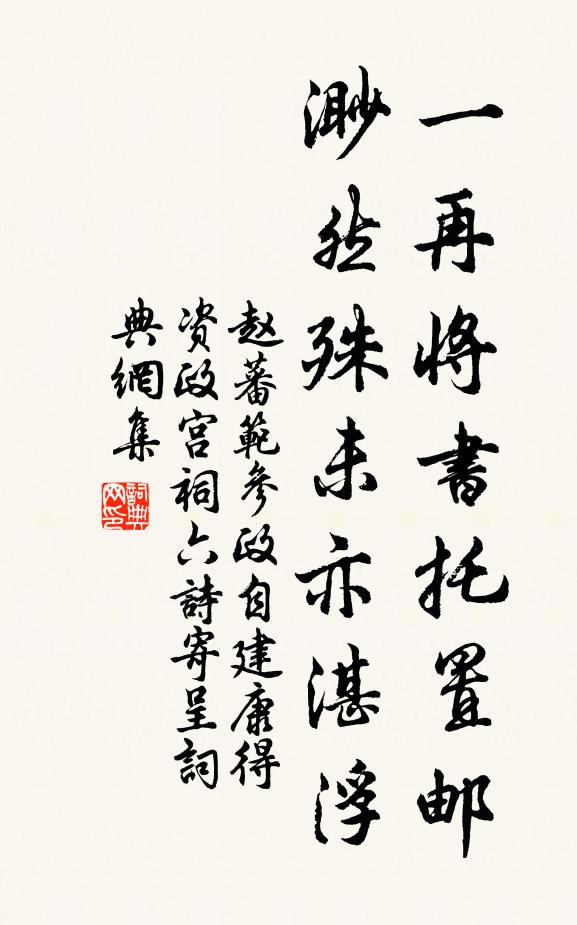 一再将書托置邮
渺然殊未亦湛浮
赵蕃範參政自建康得
资政宫祠六詩寄呈詞
典網集
詞典
网印